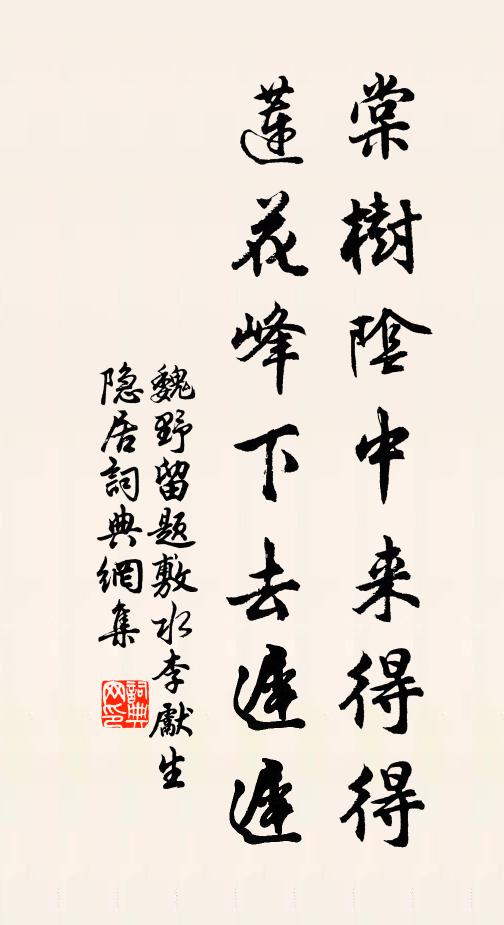 棠樹陰中来得得
蓮花峰下去遲遲
魏野留題敷水李獻生
隐居詞典網集
詞典网印